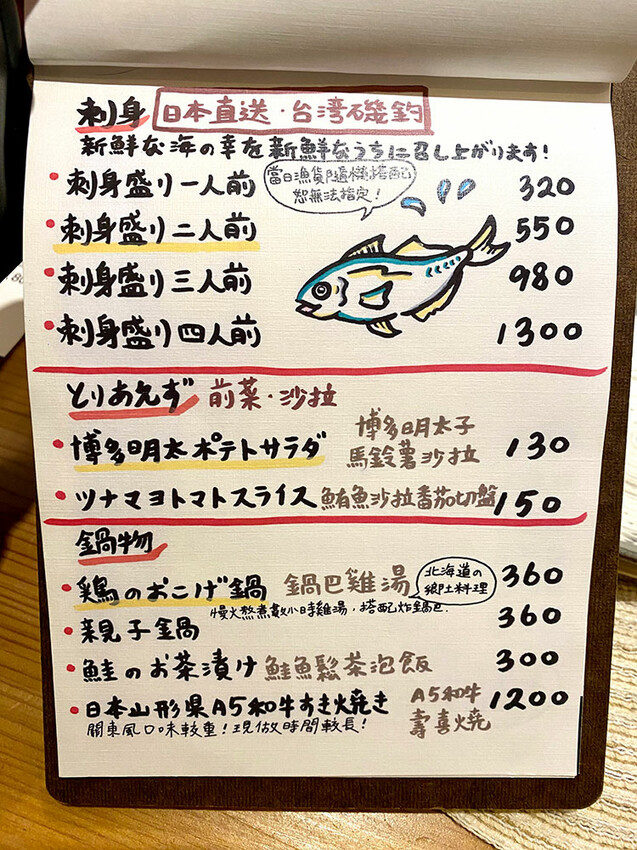 刺身 日本直送・台湾磯釣
新鮮な海の幸を新鮮なうちに召し上がります!
・刺身盛り一人前 320
當日漁貨隨機搭配
恕無法指定!
・刺身盛り二人前 550
・刺身盛り三人前 980
・刺身盛り四人前 1300
とりあえず 前菜・沙拉
・博多明太ポテトサラダ 130
博多明太子
馬鈴薯沙拉
・ツナマヨトマトスライス 鮪魚沙拉番茄切盤 150
鍋物
・鶏のおこげ鍋 鍋巴雞湯 360
北海道の
郷土料理
慢火熬煮數小時雞湯,搭配炸鍋巴.
・親子鍋 360
・鮭のお茶漬け 鮭魚鬆茶泡飯 300
・日本山形県A5和牛すき焼き 1200
A5和牛
壽喜燒
關東風口味較重!現做時間較長!